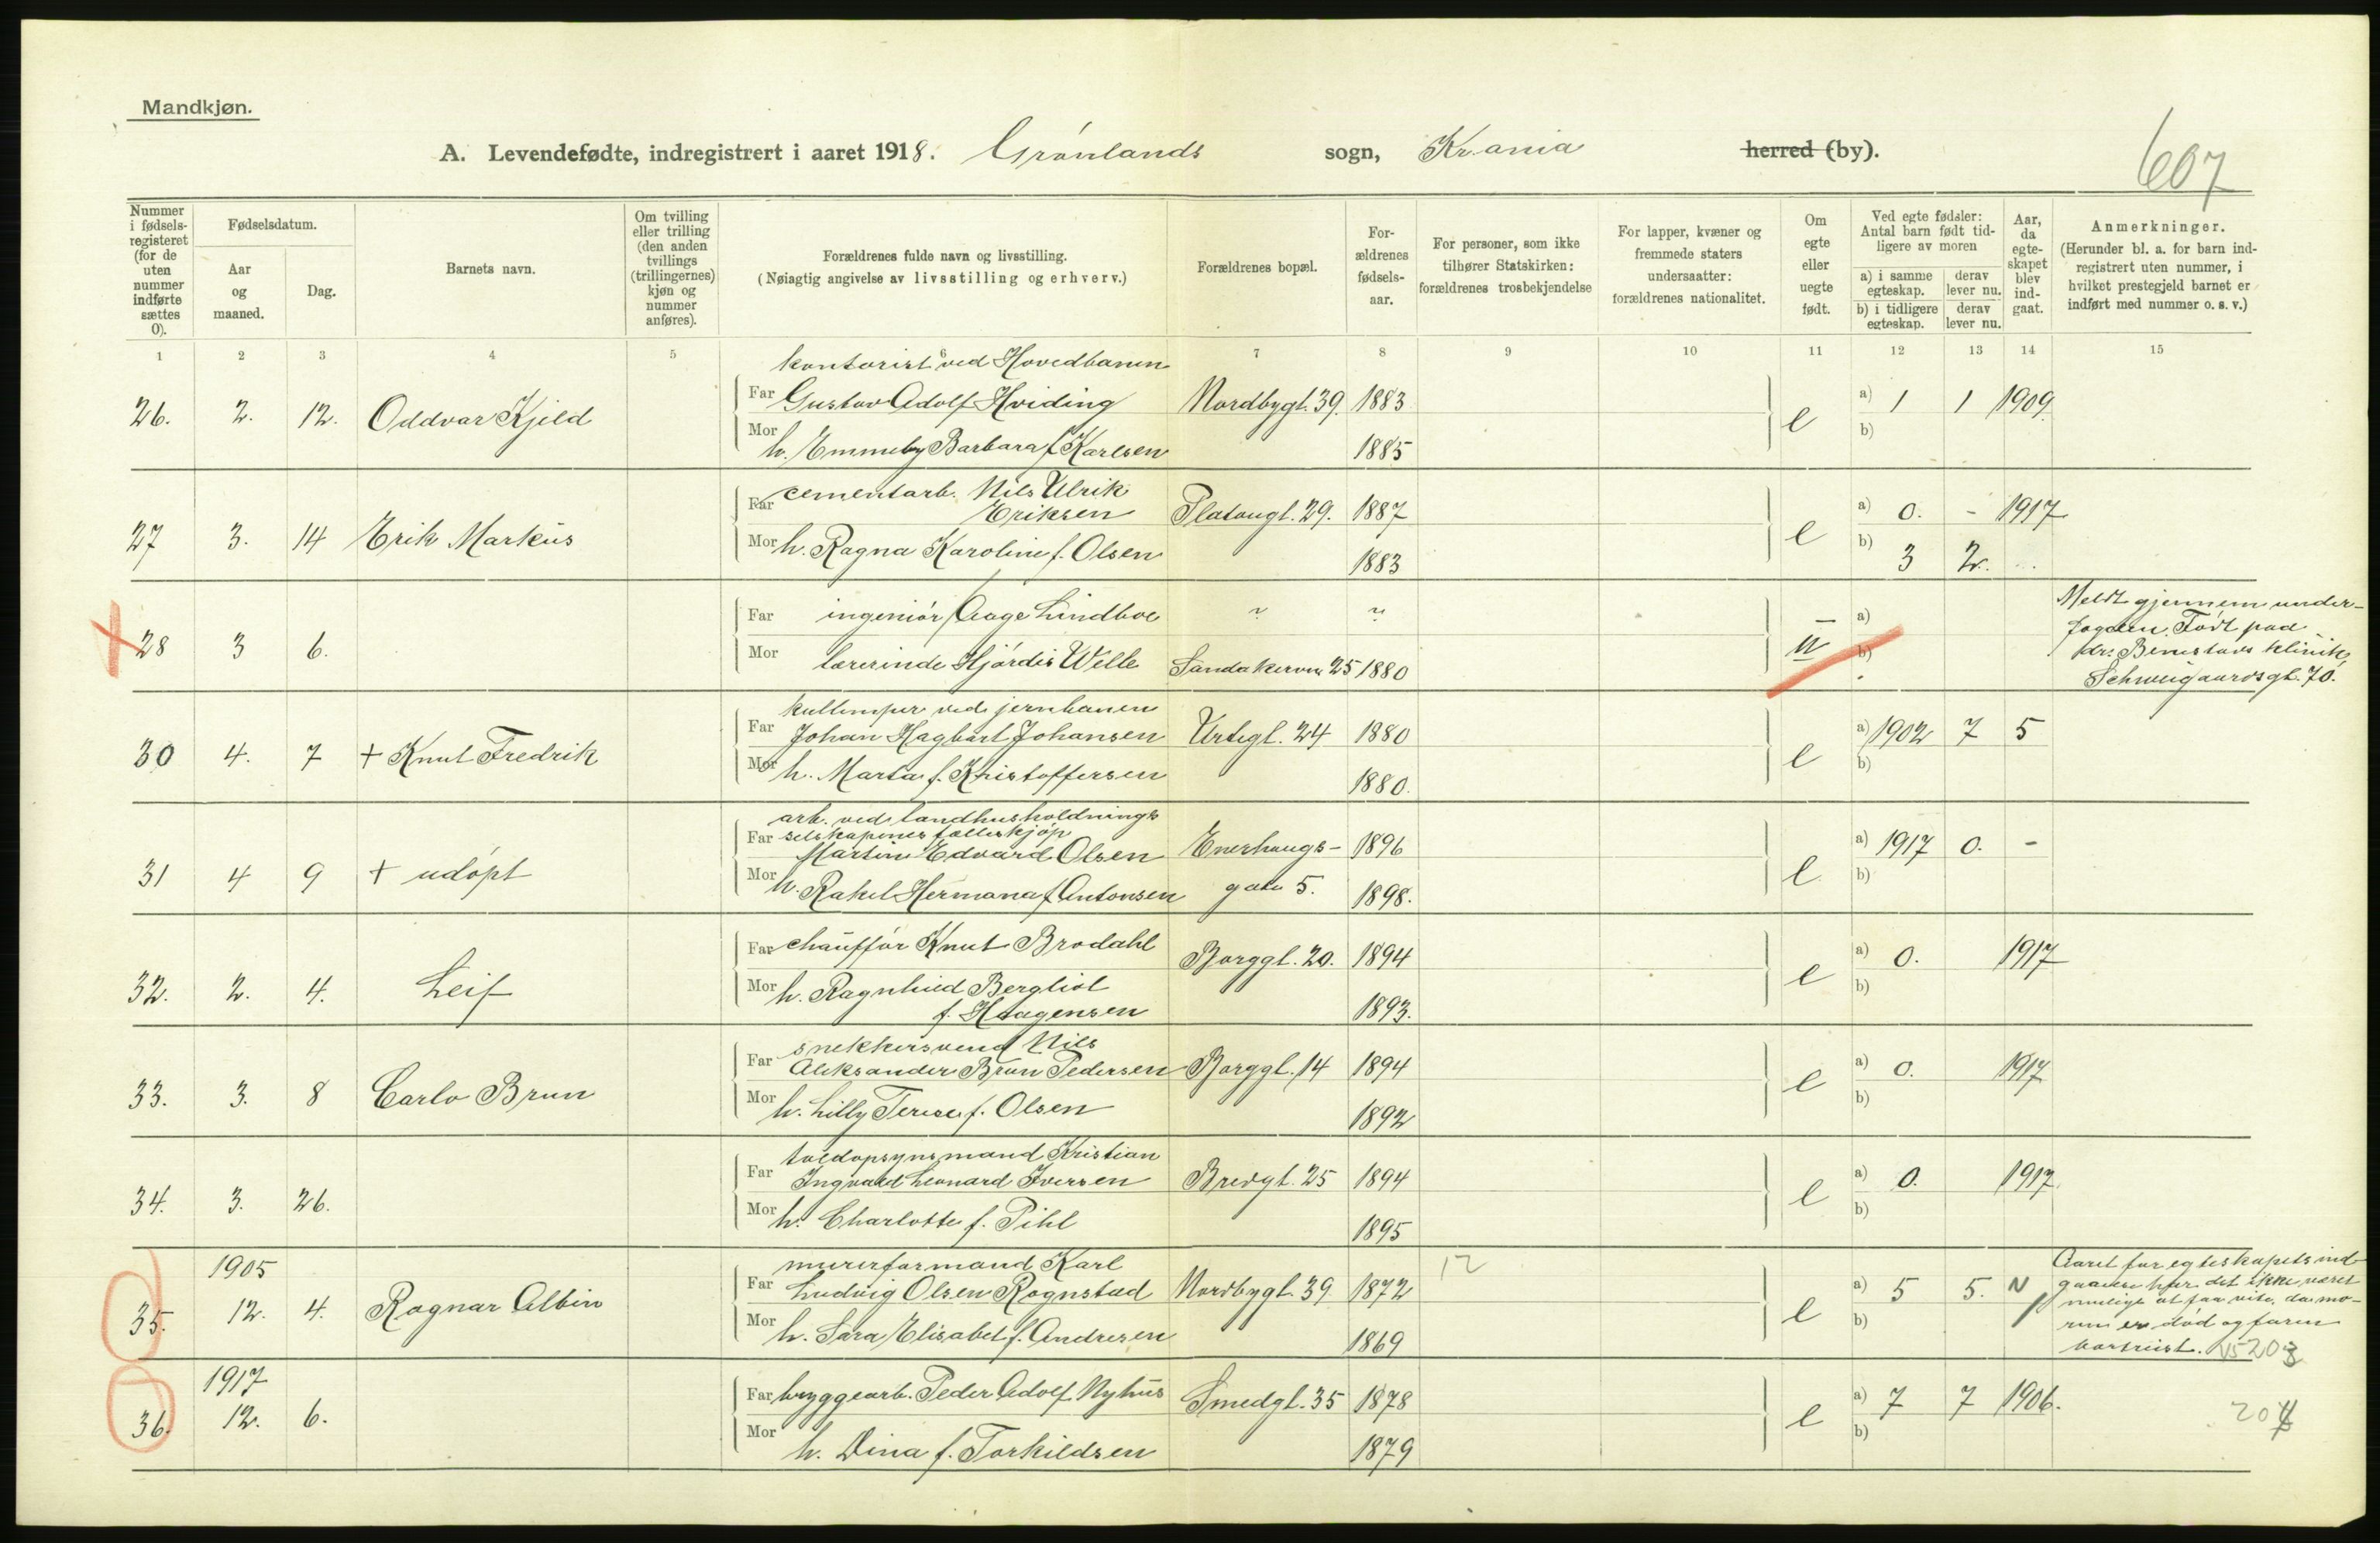 Mandkjøn.
A. Levendefødte, indregistrert i aaret 1918. Grønlands sogn, Kr.ania herred (by).
607
Nummer i fødselsregisteret (for de uten nummer indførte sættes 0).
Fødselsdatum.
Aar og maaned.
Dag.
Barnets navn.
Om tvilling eller trilling (den anden tvillings (trillingernes) kjøn og nummer anføres).
Forældrenes fulde navn og livsstilling.
(Nøiagtig angivelse av livsstilling og erhverv.)
Forældrenes bopæl.
Forældrenes fødselsaar.
For personer, som ikke tilhører Statskirken: forældrenes trosbekjendelse
For lapper, kvæner og fremmede staters undersaatter: forældrenes nationalitet.
Om egte eller uegte født.
Ved egte fødsler: Antal barn født tidligere av moren
a) i samme egteskap. derav lever nu.
b) i tidligere egteskap. derav lever nu.
Aar, da egteskapet blev indgaat.
Anmerkninger.
(Herunder bl. a. for barn indregistrert uten nummer, i hvilket prestegjeld barnet er indført med nummer o. s. v.)
1 2 3 4 5 6 7 8 9 10 11 12 13 14 15
kontorist ved Hovedbanen
26. 2. 12. Oddvar Kjeld Far Gustav Adolf Hviding Nordbygt. 39. 1883 e a) 1 1 1909
Mor h. Emmeby Barbara f. Karlsen 1885 b)
27 3. 14 Erik Markus Far cementarb. Nils Ulrik
Eriksen Platougt. 29. 1887 e a) 0. - 1917
Mor h. Ragna Karoline f. Olsen 1883 b) 3 2.
28 3 6. Far ingeniør Aage Lindboe ~ ~ u a)
Mor lærerinde Hjørdis Welle Sandakervn 25 1880 b)
Meldt gjennem under-
fogden. Født paa
drs Benestads klinik,
Schweigaardsgt. 70.
kullemper ved jernbanen
30 4. 7 + Knut Fredrik Far Johan Hagbart Johansen Urtegt. 24 1880 e a) 1902 7 5
Mor h. Marta f. Kristoffersen 1880. b)
arb. ved landhusholdnings
selskapenes felleskjøp
31 4 9 + udøpt Far Martin Edvard Olsen Enerhaugs- 1896 e a) 1917 0. -
Mor h. Rakel Hermana f. Antonsen gate 5. 1898. b)
32. 2. 4. Leif Far chauffør Knut Brodahl Borggt. 20. 1894 e a) 0. 1917
Mor h. Ragnhild Bergliot
f. Haagensen 1893. b)
snekkersvend Nils
33. 3. 8 Carlo Brun Far Aleksander Brun Pedersen Borggt. 14 1894 e a) 0. 1917
Mor h. Lilly Terese f. Olsen 1892 b)
toldopsynsmand Kristian
34. 3. 26. Far Ingvald Leonard Iversen Bredgt. 25 1894 e a) 0. 1917
Mor h. Charlotte f. Pihl 1895 b)
1905
murerformand Karl
35. 12. 4. Ragnar Albin Far Ludvig Olsen Rognstad Nordbygt. 39 1872 12 e a) 5 5.
Mor h. Sara Elisabet f. Andresen 1869 b)
Aaret for egteskapets ind-
gaaelse har det ikke været
mulig at faa vite, da mo-
ren er død og faren
bortreist. 203
1917
36. 12. 6. Far bryggearb. Peder Adolf Nyhus Smedgt. 35 1878 e a) 7 7 1906.
Mor h. Dina f. Torkildsen 1879 b)
204